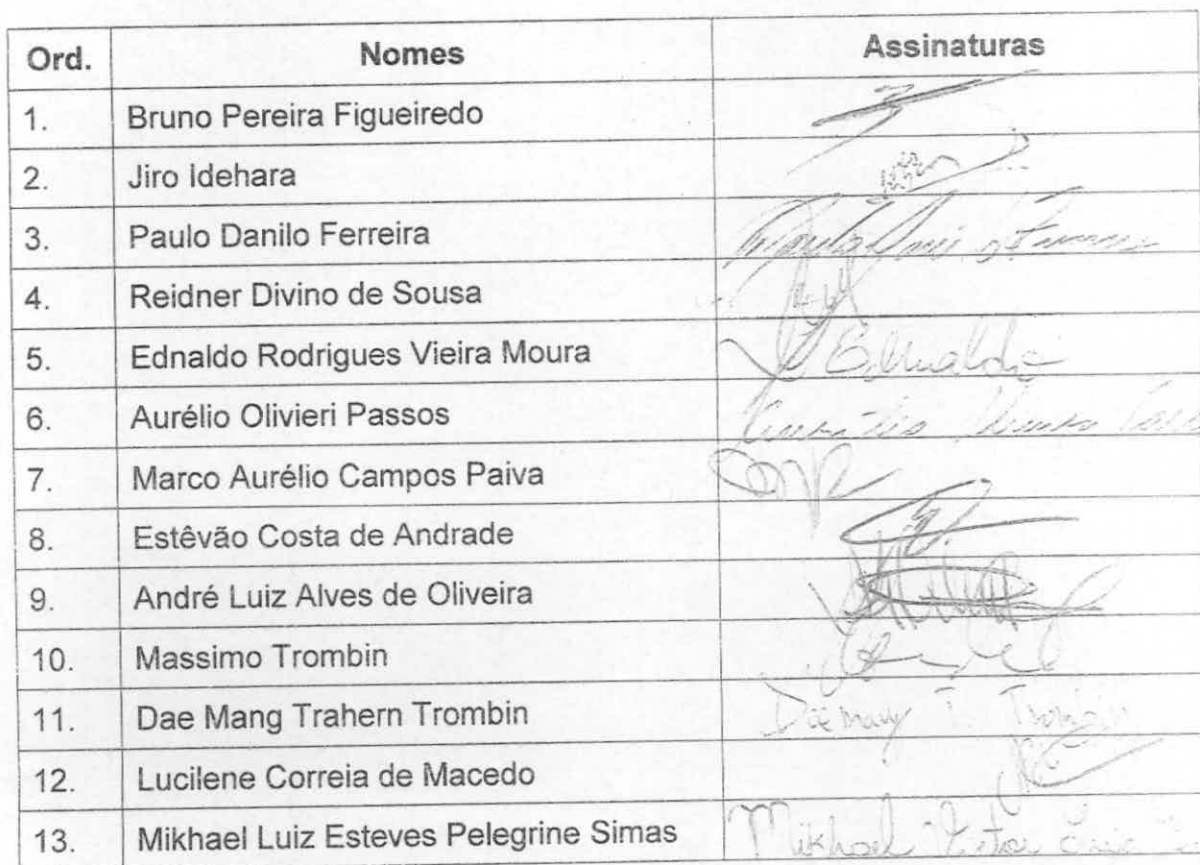 Ord. Nomes Assinaturas
1. Bruno Pereira Figueiredo
2. Jiro Idehara
3. Paulo Danilo Ferreira
4. Reidner Divino de Sousa
5. Ednaldo Rodrigues Vieira Moura Ednaldo
6. Aurélio Olivieri Passos
7. Marco Aurélio Campos Paiva
8. Estêvão Costa de Andrade
9. André Luiz Alves de Oliveira
10. Massimo Trombin
11. Dae Mang Trahern Trombin Dae Mang T. Trombin
12. Lucilene Correia de Macedo
13. Mikhael Luiz Esteves Pelegrine Simas Mikhael